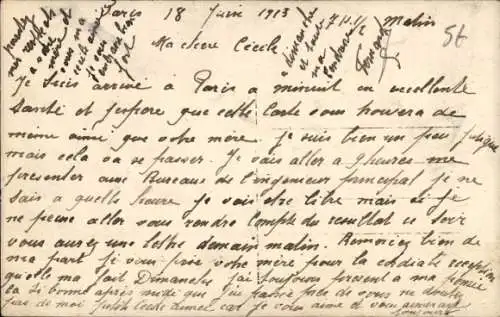 Paris 18 Juin 1913 7 H 1/2 Matin
Ma chere Cécile
Je suis arrivé a Paris a minuit en excellente
santé et j'espere que cette carte vous trouvera de
meme ainsi que votre mère. je suis bien un peu fatigué
mais cela va se passer. Je vais aller a 9 heures me
presenter aux Bureaux de l'ingenieur principal je ne
sais a quelle heure je vais etre libre mais si je
ne peux aller vous rendre compte du resultat ce soir
vous aurez une lettre demain matin. Remerciez bien de
ma part je vous prie votre mère pour la cordiale reception
qu'elle ma fait Dimanche j'ai toujours present a ma pensée
la si bonne après midi que j'ai passé près de vous ne doutez
pas de moi petite Cecile aimée car je vous aime et vous aimerai
toujours
presentez
mes respects
a votre
mère et
5t